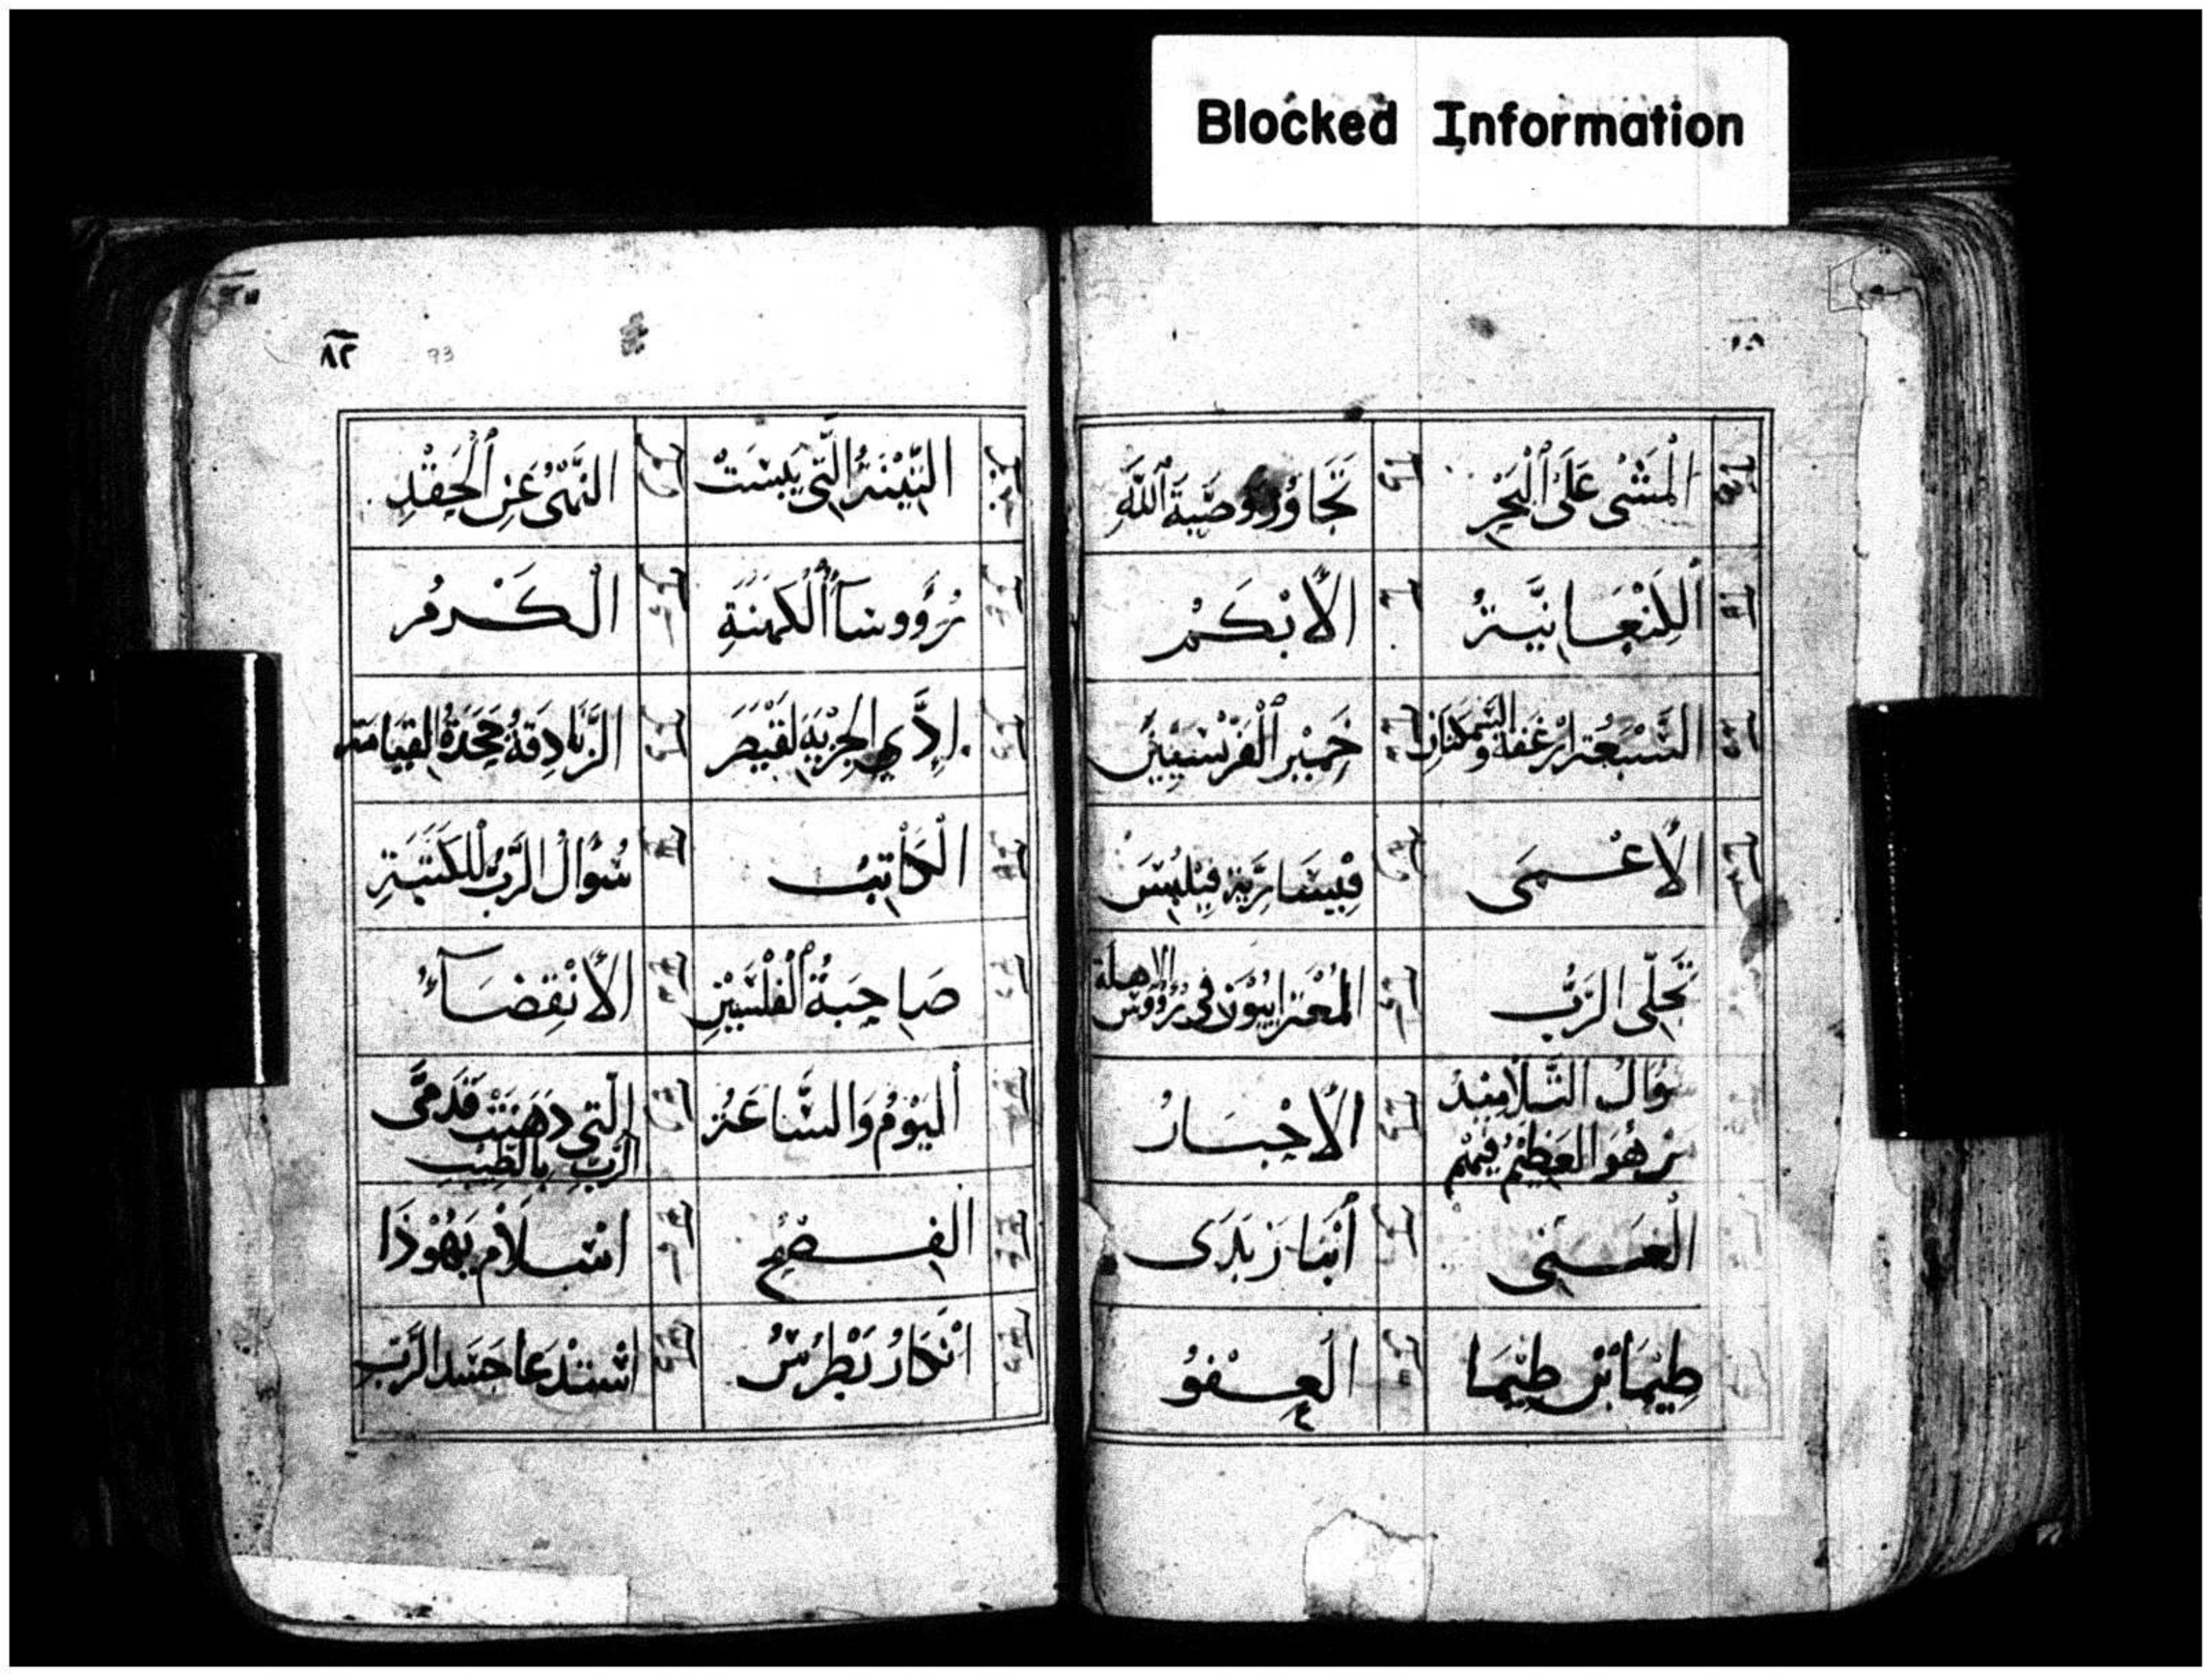 Blocked Information
ٱلْمَشْىُ عَلَى ٱلْبَحْرِ
تَجَاوُزُ وَصَّيَةِ ٱللَّهِ
ٱلكَنْعَانِيَّةُ
الْأَبْكَمُ
السَّبْعَةُ أَرْغِفَه والسَّمَكَتَانِ
خَمِيْرِ ٱلْفَرِّيْسِيِّينَ
الْأَعْمَى
قَيْسَارِيَّة فِيْلِبُسَ
تَجَلِّى الرَّبِّ
المُعْتَرايِيُوْنَ فى رُؤُوسِ الاهِلَّة
سُوَالُ التَّلَامِيْدُ
مَنْ هُوَ العَظِيْمُ فِيْهِمْ
الْأَخْبَارُ
الْغَنِى
أَبْنَا زَبَدَى
طِيْمَا بْنُ طِيْمَا
الْعِفْوُ
٨٢
93
التِّيْنَةُ الَّتِى يَبِسَتْ
النَّهْىُ عَنِ ٱلْحِقْدِ
رُؤُوسَآءُ ٱلْكَهَنَةِ
الْكَرْمُ
إِدِّي الجِزْيَةِ لِقَيْصَرَ
الزَّنَادِقَةُ جَحَدَةُ القِيَامَة
الْكَاتِبُ
سُوَالُ الرَّبِّ لِلْكَتَبَةِ
صَاحِبَةُ ٱلْفَلْسَيْنِ
الْأَنْقِضَآءُ
ٱليَوْمُ وَالسَّاعَةُ
الَّتِي دَهَنَتْ قَدَمَىَّ
الرَّبِّ بِالطِّيْبِ
الْفِصْحُ
اسْلَامُ يَهُوْذَا
انْكَارُ بُطْرُسُ
اسْتِدْعَا جَسَدِ الرَّبِّ